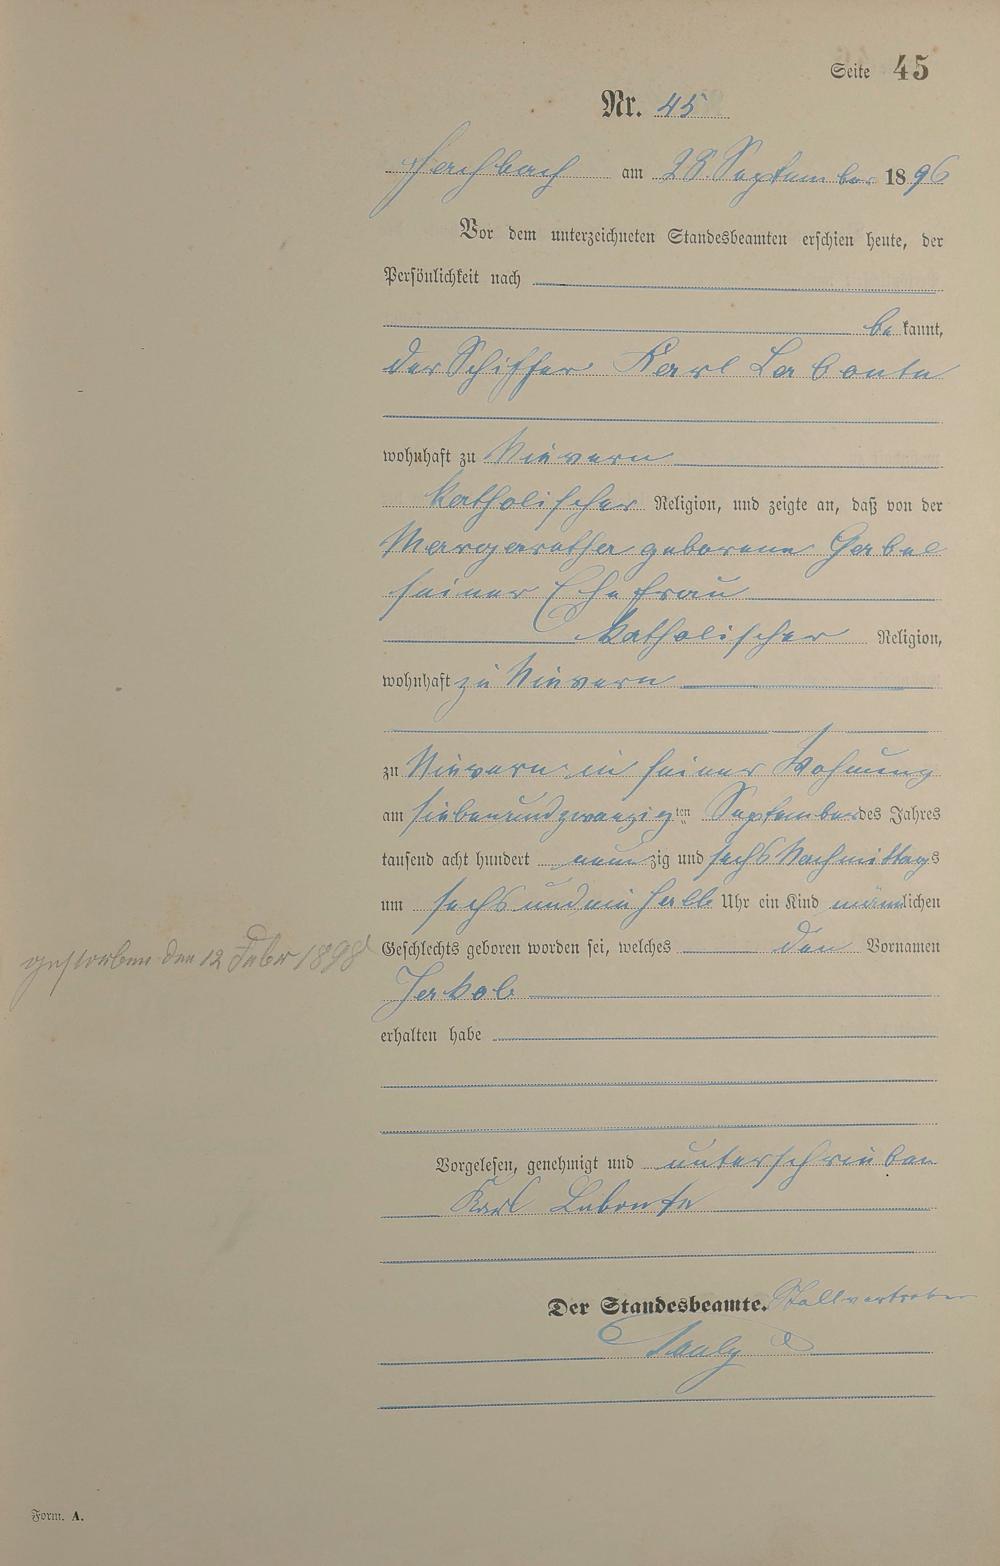 Seite 45
Nr. 45
Fachbach am 28. September 1896
Vor dem unterzeichneten Standesbeamten erschien heute, der
Persönlichkeit nach
bekannt,
der Schiffer Karl Labonte
wohnhaft zu Nievern
katholischer Religion, und zeigte an, daß von der
Margaretha geborene Gabel
seiner Ehefrau
katholischer Religion,
wohnhaft zu Nievern
zu Nievern in seiner Wohnung
am siebenundzwanzigten September des Jahres
tausend acht hundert neunzig und sechs Nachmittags
um sechs und ein halb Uhr ein Kind männlichen
gestorben den 12 Febr 1898
Geschlechts geboren worden sei, welches den Vornamen
Jakob
erhalten habe
Vorgelesen, genehmigt und unterschrieben
Karl Labonte
Der Standesbeamte. Stellvertreter
Pauly
Form. A.